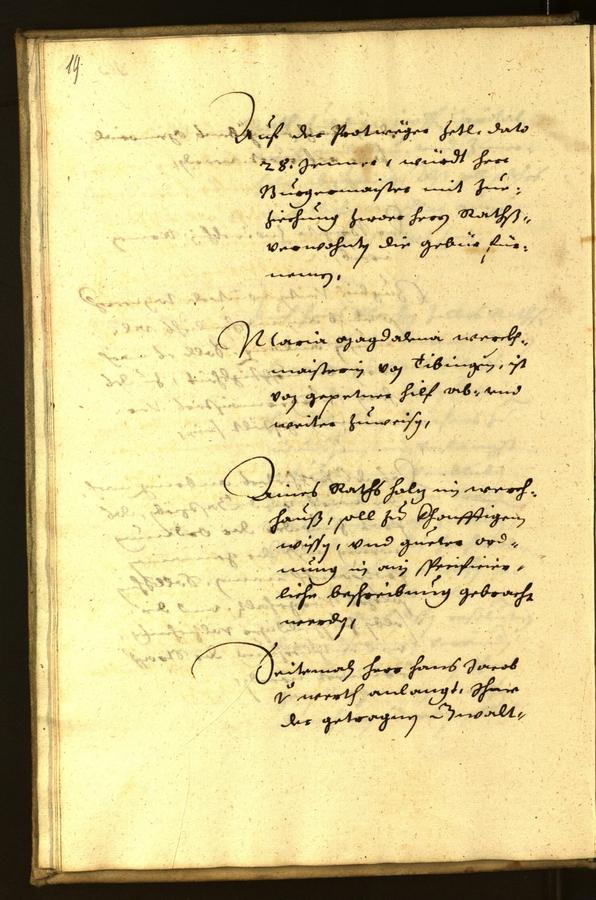 19.
Auf der Protweger Zetl. dato
28. Jenner, würdt herr
Burgermaister mit zue=
ziechung zwaier herrn Raths=
verwohnten die gebür für=
nemen,
Maria Magdalena
maisterin von Tibingen, ist
von gepetner hilf ab= und
weiter zuweisen,
Aines Raths halz im werch=
hauß, soll zu khonfftigem
wissen, und gueter ord=
nung in ain specificier=
liche beschreibung gebracht
werden,
Seitemaln herr hanns Jacob
V werth anlangt, Ihme
der getragnen Zwalt=